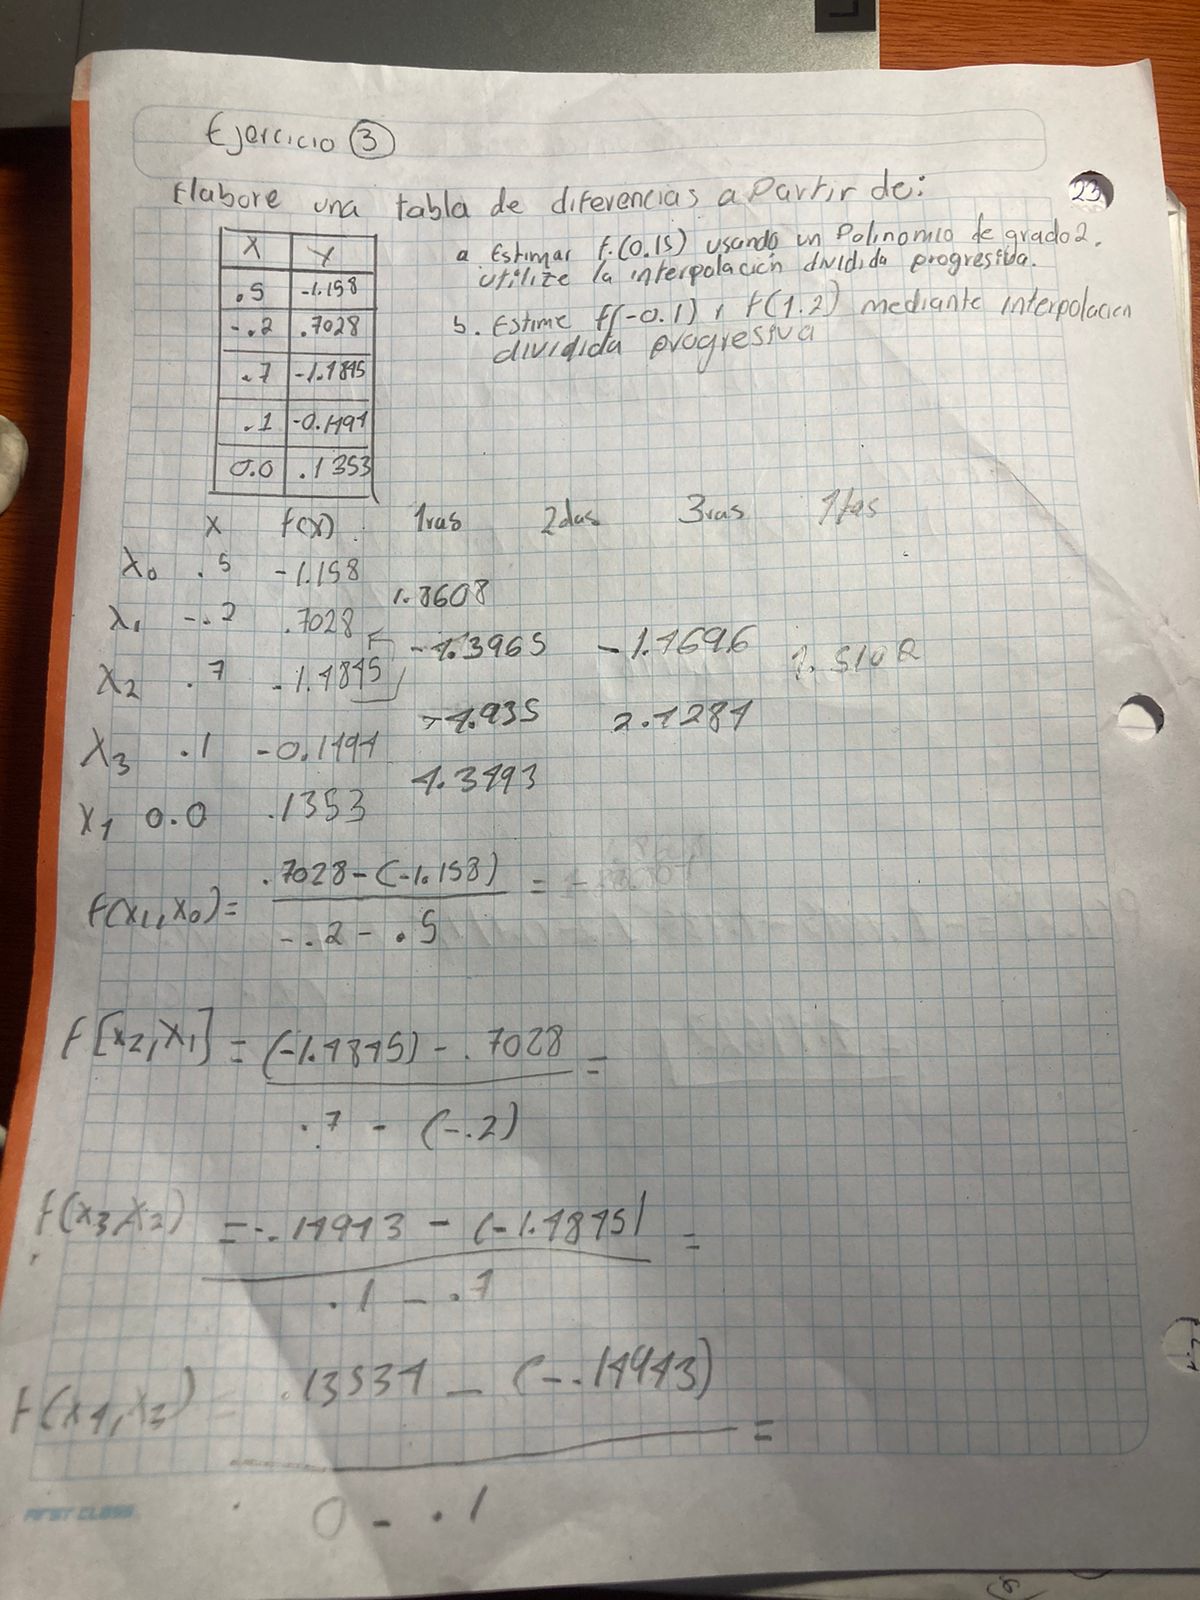 Ejercicio 3
Elabore una tabla de diferencias a partir de:
23
X Y
.5 -1.158
-.2 .7028
.7 -1.4845
.1 -0.1494
0.0 .1353
a Estimar f.(0.15) usando un Polinomio de grado 2.
utilize la interpolación dividida progresiva.
b. Estime f(-0.1) y f(1.2) mediante interpolacion
dividida progresiva
x f(x) 1ras 2das 3ras 4tas
x0 .5 -1.158
1.8608
x1 -.2 .7028
-4.3965 -1.4696
x2 .7 -1.4845
-4.935 2.4284
x3 .1 -0.1494
4.3493
x4 0.0 .1353
f(x1,x0)= .7028-(-1.158) =
-.2 - .5
f[x2,x1] = (-1.4845) - .7028 =
.7 - (-.2)
f(x3,x2) = -.14943 - (-1.4845) =
.1 - .7
f(x4,x3) = .13534 - (-.14943) =
0 - .1
FIRST CLASS